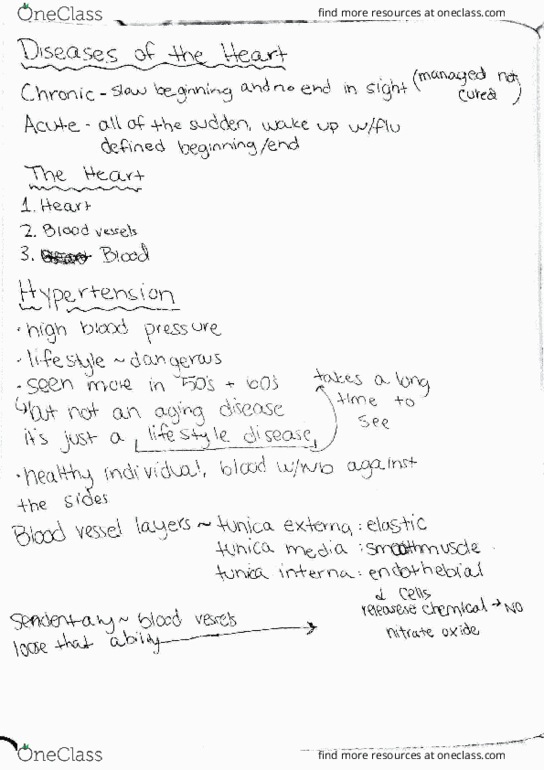 OneClass
find more resources at oneclass.com
Diseases of the Heart
Chronic - slow beginning and no end in sight (managed not cured)
Acute - all of the sudden, wake up w/flu
defined beginning/end
The Heart
1. Heart
2. Blood vessels
3. Blood
Hypertension
· high blood pressure
· lifestyle ~ dangerous
· seen more in 50's + 60's
↳ but not an aging disease
it's just a lifestyle disease,
takes a long
time to
see
· healthy individual, blood against
the sides
Blood vessel layers ~ tunica externa : elastic
tunica media : smooth muscle
tunica interna : endothebial
↓ cells
releasese chemical → NO
nitrate oxide
Sendentary ~ blood vessels
loose that ability →
OneClass
find more resources at oneclass.com